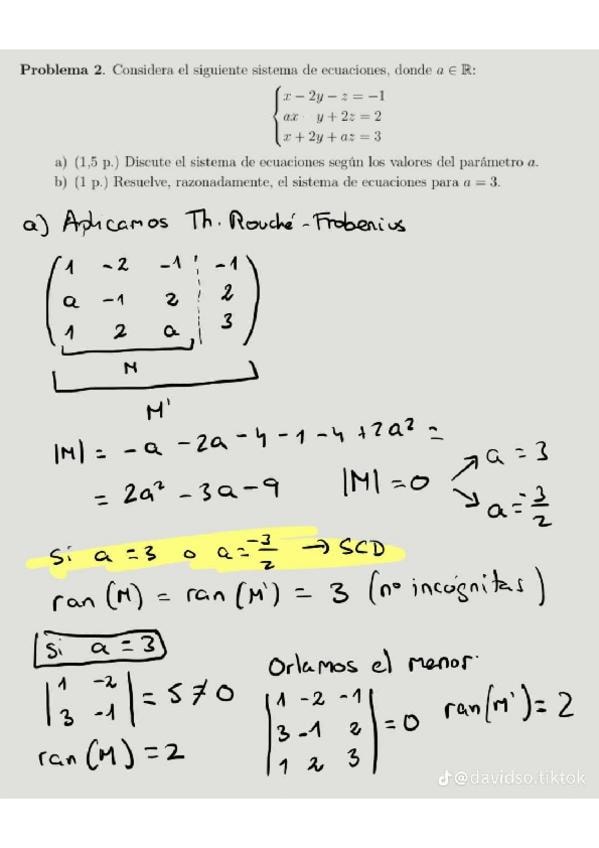 Problema 2. Considera el siguiente sistema de ecuaciones, donde a ∈ ℝ:
x − 2y − z = −1
ax y + 2z = 2
x + 2y + az = 3
a) (1,5 p.) Discute el sistema de ecuaciones según los valores del parámetro a.
b) (1 p.) Resuelve, razonadamente, el sistema de ecuaciones para a = 3.
a) Aplicamos Th. Rouché-Frobenius
1 -2 -1 -1
a -1 2 2
1 2 a 3
M
M'
|M| = -a -2a -4 -1 -4 +2a² =
= 2a² -3a -9 |M| = 0 a = 3
a = -3/2
Si a = 3 o a = -3/2 → SCD
ran (M) = ran (M') = 3 (nº incógnitas)
Si a = 3
Orlamos el menor:
|1 -2| = 5 ≠ 0
|3 -1|
ran (M) = 2
|1 -2 -1|
|3 -1 2| = 0 ran(M') = 2
|1 2 3|
@davidso.tiktok